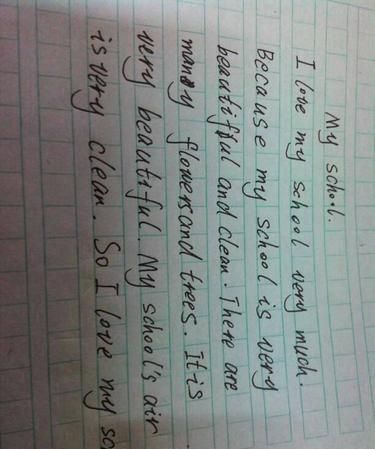 My school.
I love my school very much.
Because my school is very
beautiful and clean. There are
many flowers and trees. It is
very beautiful. My school's air
is very clean. So I love my